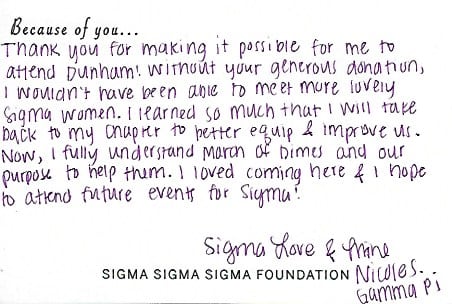 Because of you...
Thank you for making it possible for me to
attend Dunham! Without your generous donation,
I wouldn't have been able to meet more lovely
Sigma women. I learned so much that I will take
back to my chapter to better equip & improve us.
Now, I fully understand March of Dimes and our
purpose to help them. I loved coming here & I hope
to attend future events for Sigma!
Sigma Love & Mine
SIGMA SIGMA SIGMA FOUNDATION Nicole S...
Gamma Pi